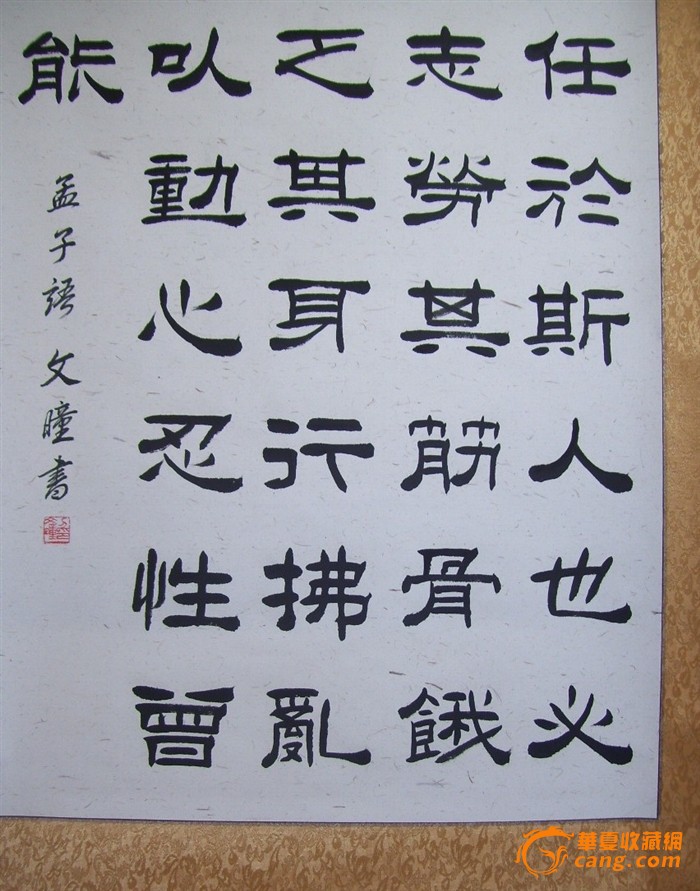 任於斯人也必
志勞其筋骨餓
乏其身行拂亂
㕥動心忍性曾
能
孟子語 文瞳書
華夏收藏網
cang.com